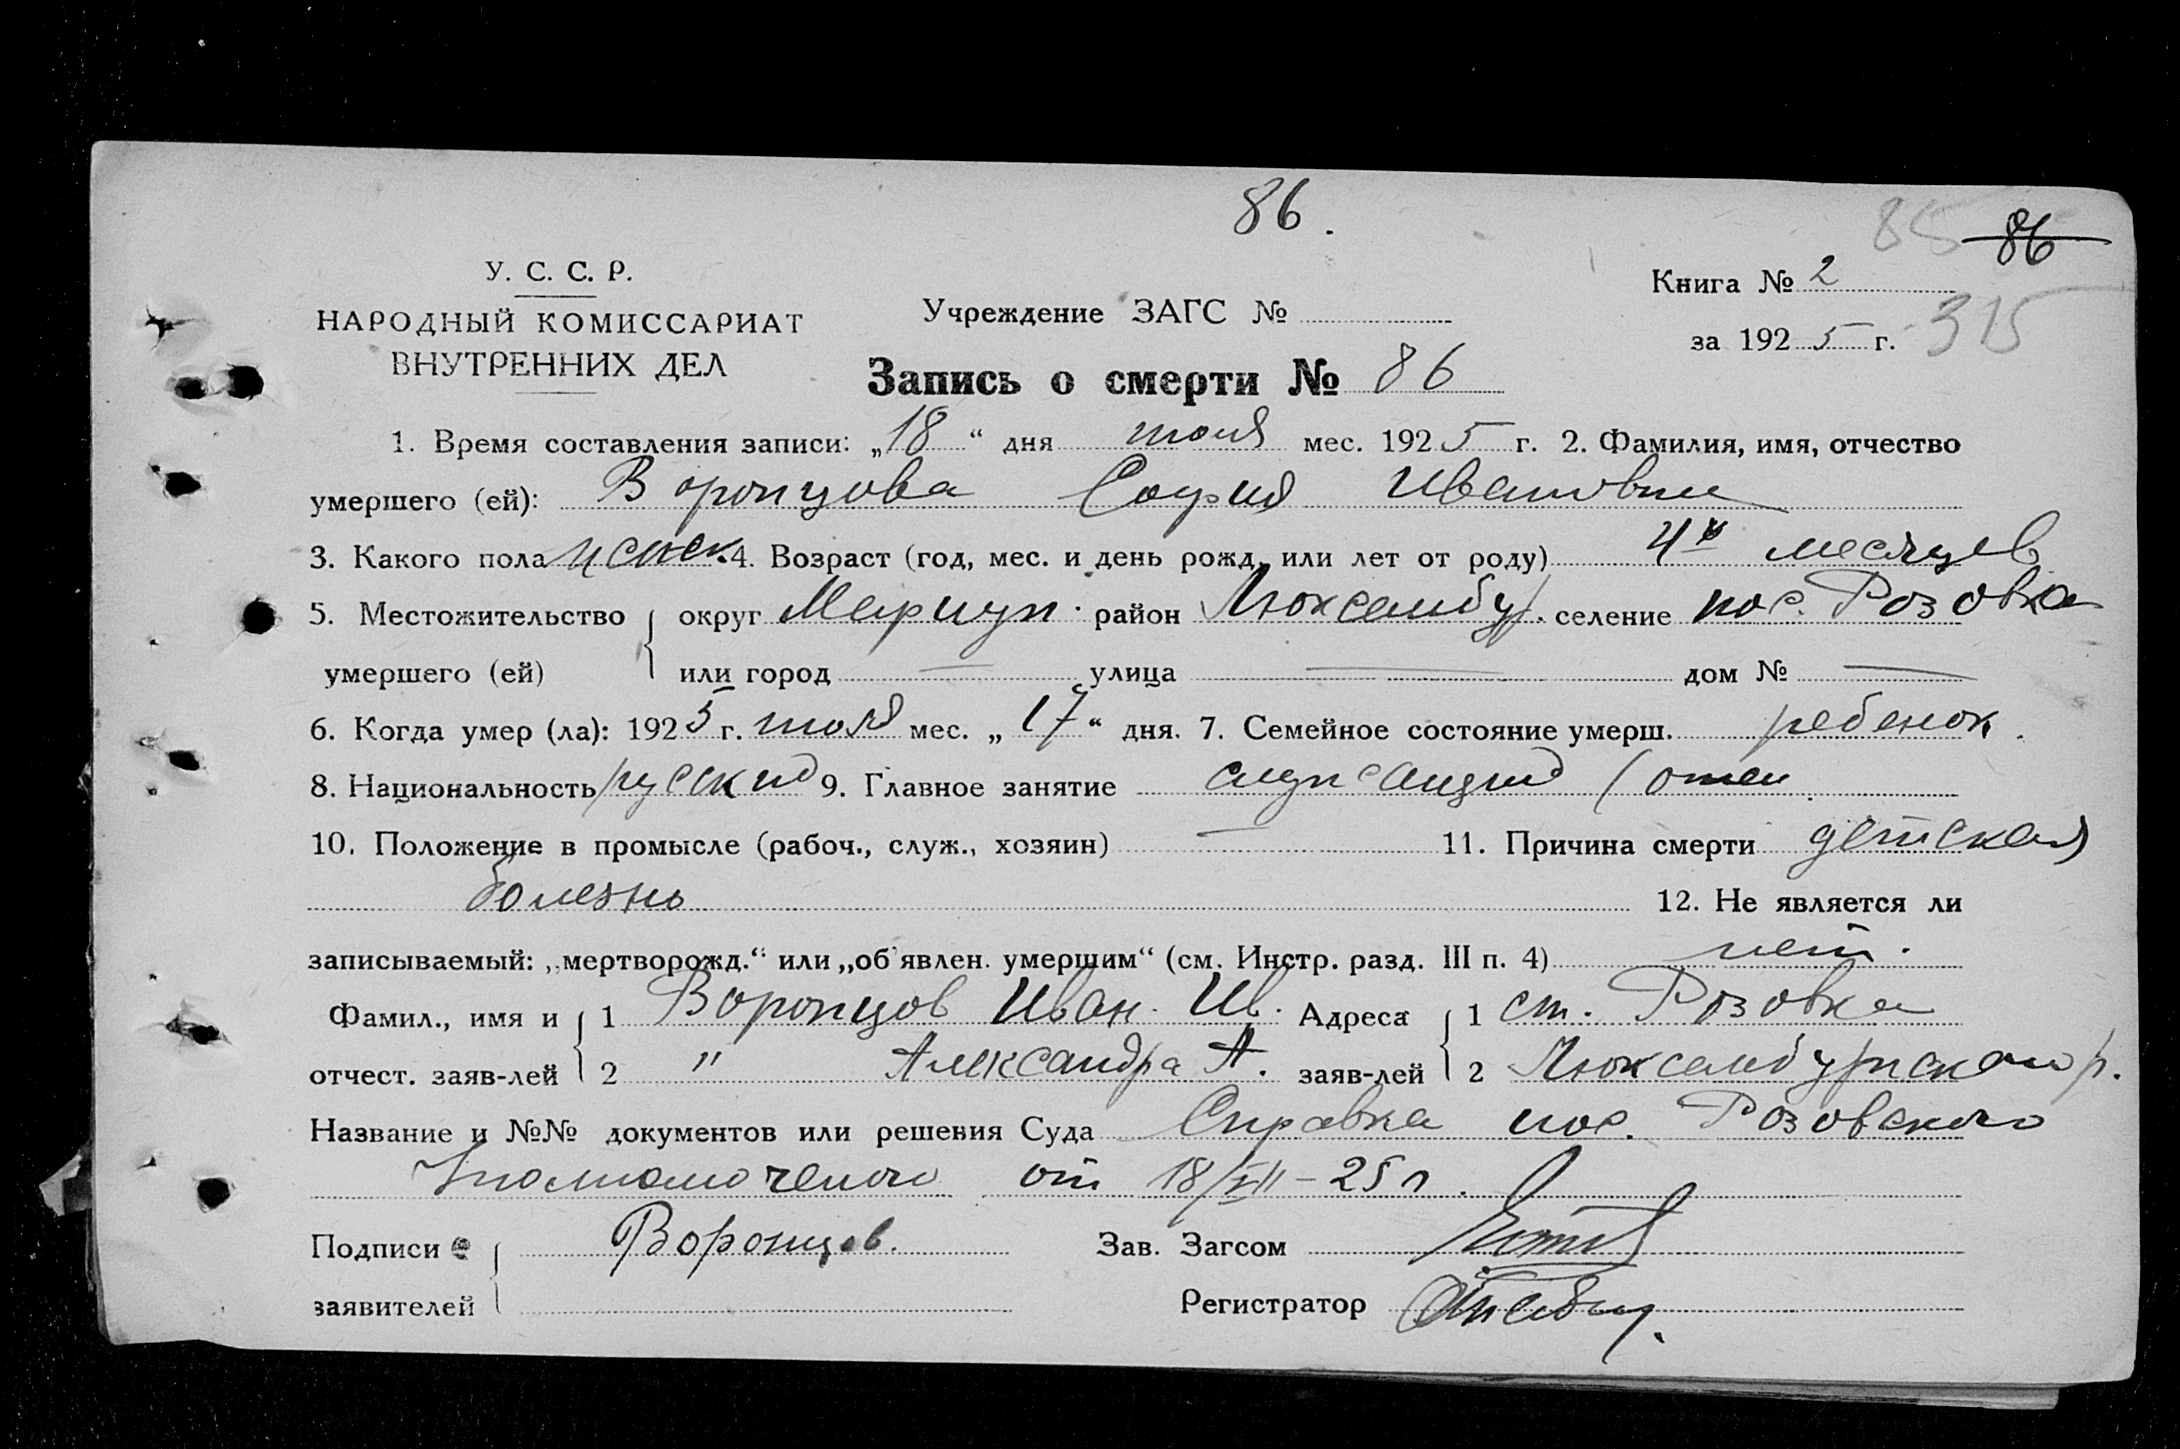 86.
85 86
У. С. С. Р.
Книга № 2
НАРОДНЫЙ КОМИССАРИАТ
Учреждение ЗАГС №
за 1925 г. 315
ВНУТРЕННИХ ДЕЛ
Запись о смерти № 86
1. Время составления записи: „18“ дня июля мес. 1925 г. 2. Фамилия, имя, отчество
умершего (ей): Воронцова София Ивановна
3. Какого пола женск. 4. Возраст (год, мес. и день рожд. или лет от роду) 4х месяцев
5. Местожительство округ Мариуп. район Люксембур. селение пос. Розовка
умершего (ей) или город — улица — дом № —
6. Когда умер (ла): 1925 г. июля мес. „17“ дня. 7. Семейное состояние умерш. ребенок.
8. Национальность русский 9. Главное занятие служащий (отец
10. Положение в промысле (рабоч., служ., хозяин) — 11. Причина смерти детская
болезнь 12. Не является ли
записываемый: „мертворожд.“ или „об'явлен. умершим“ (см. Инстр. разд. III п. 4) нет.
Фамил., имя и 1 Воронцов Иван. Ив. Адреса 1 ст. Розовка
отчест. заяв-лей 2 " Александра А. заяв-лей 2 Люксембургского р.
Название и №№ документов или решения Суда Справка пос. Розовского
Уполномоченого от 18/VII-25 г.
Подписи Воронцов. Зав. Загсом
заявителей Регистратор